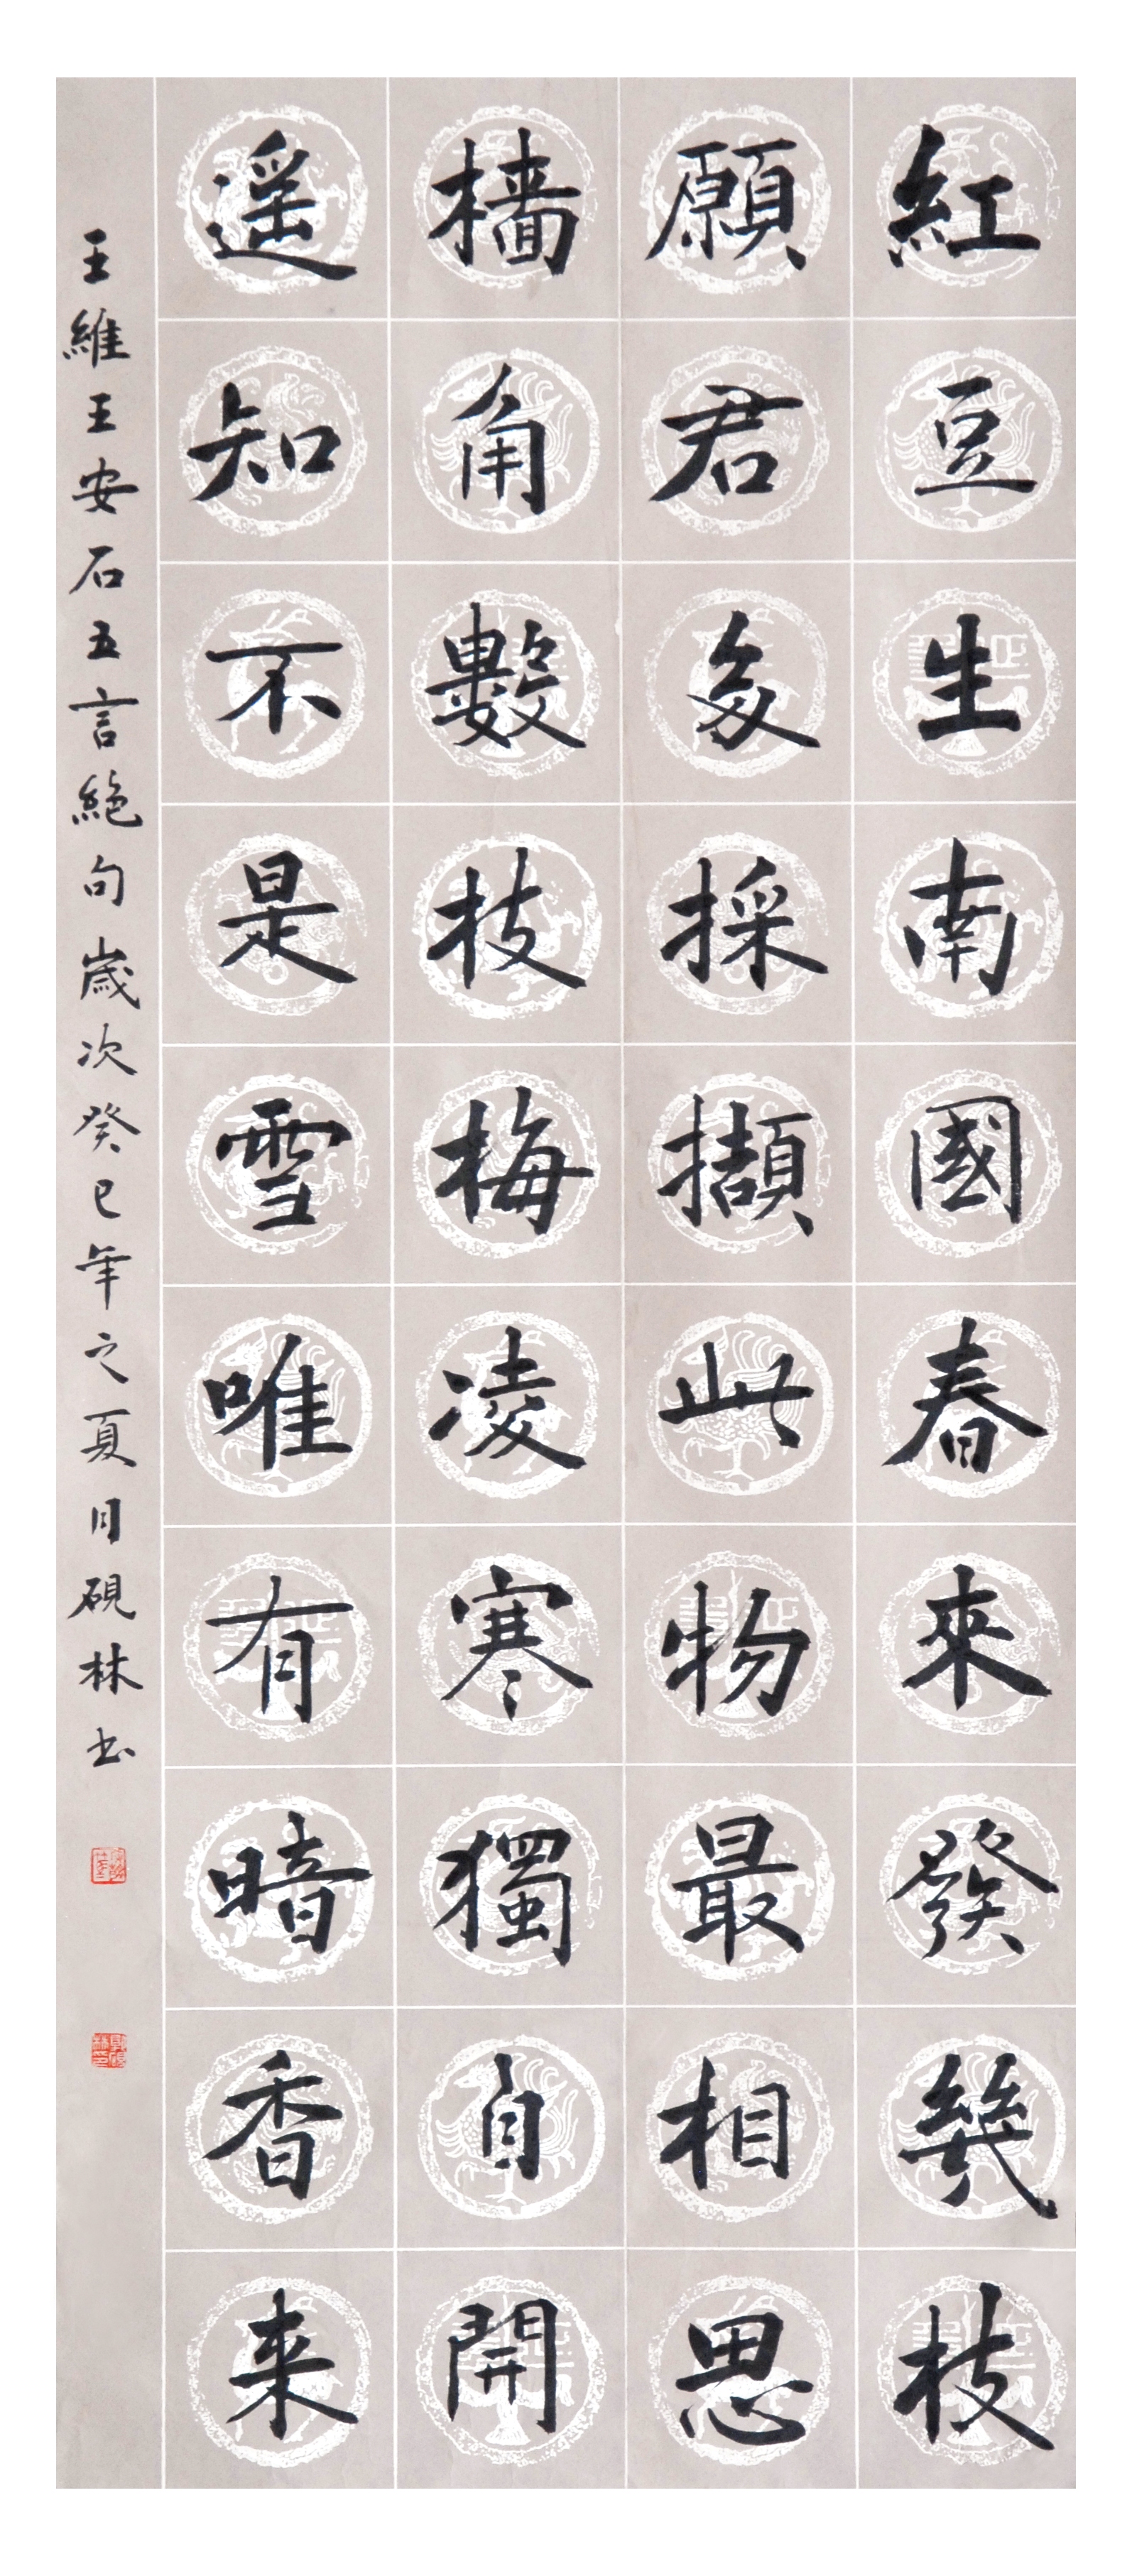 紅豆生南國春來發幾枝
願君多採擷此物最相思
樯角數枝梅凌寒獨自開
遥知不是雪唯有暗香来
王維王安石五言絕句歲次癸巳年之夏月硯林书